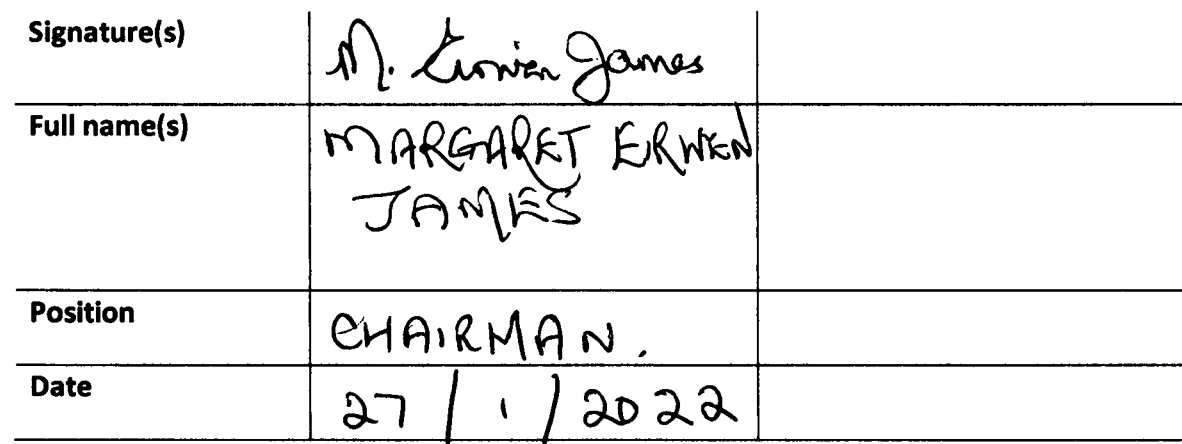 Signature(s)
M. Erwen James
Full name(s)
MARGARET ERWEN
JAMES
Position
CHAIRMAN.
Date
27/1/2022